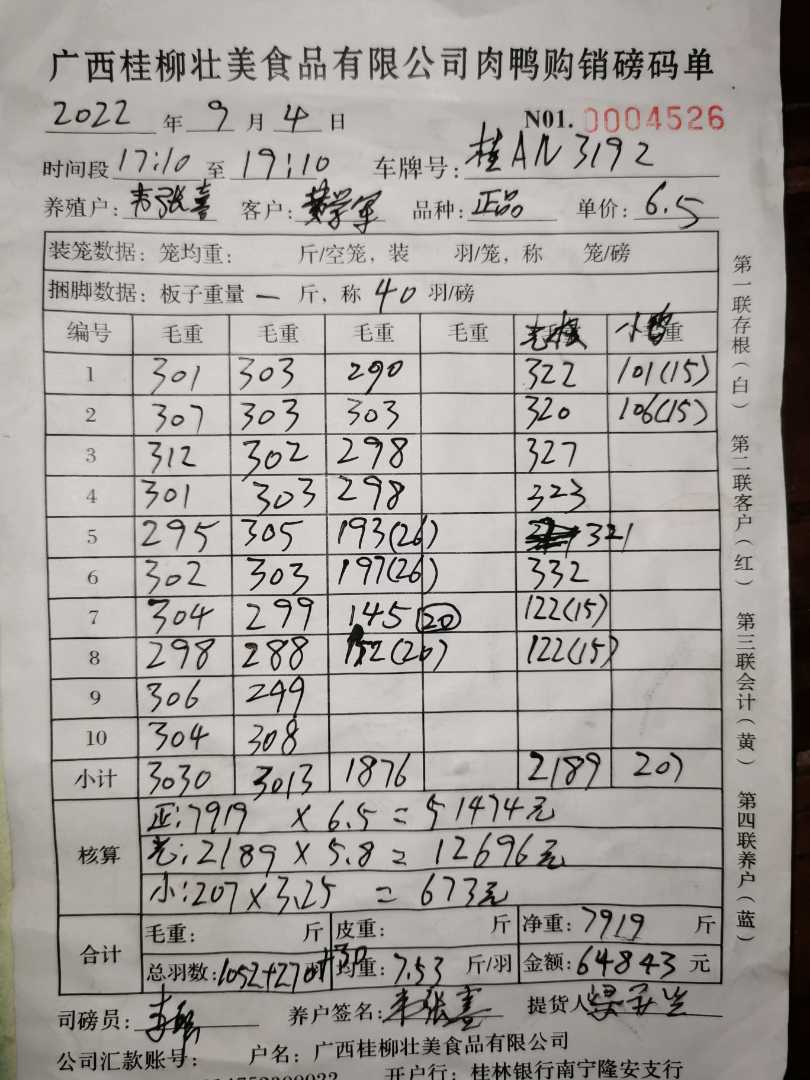 广西桂柳壮美食品有限公司肉鸭购销磅码单
2022 年 9 月 4 日 N01. 0004526
时间段 17:10 至 19:10 车牌号: 桂AN3192
养殖户: 韦张喜 客户: 黄学军 品种: 正品 单价: 6.5
装笼数据: 笼均重: 斤/空笼, 装 羽/笼, 称 笼/磅
捆脚数据: 板子重量 一 斤, 称 40 羽/磅
编号 毛重 毛重 毛重 毛重 小鸭 重
1 301 303 290 322 101(15)
2 307 303 303 320 106(15)
3 312 302 298 327
4 301 303 298 323
5 295 305 193(26) 321
6 302 303 197(26) 332
7 304 299 145 (20) 122(15)
8 298 288 152(20) 122(15)
9 306 299
10 304 308
小计 3030 3013 1876 2189 207
核算
正:7919 X 6.5 = 51474元
光:2189 X 5.8 = 12696元
小:207 X 3.25 = 673元
合计
毛重: 斤 皮重: 斤 净重: 7919 斤
总羽数: 1052+270+30 均重: 7.53 斤/羽 金额: 64843 元
司磅员: 养户签名: 韦张喜 提货人
公司汇款账号: 户名: 广西桂柳壮美食品有限公司
开户行: 桂林银行南宁隆安支行
第一联存根(白) 第二联客户(红) 第三联会计(黄) 第四联养户(蓝)